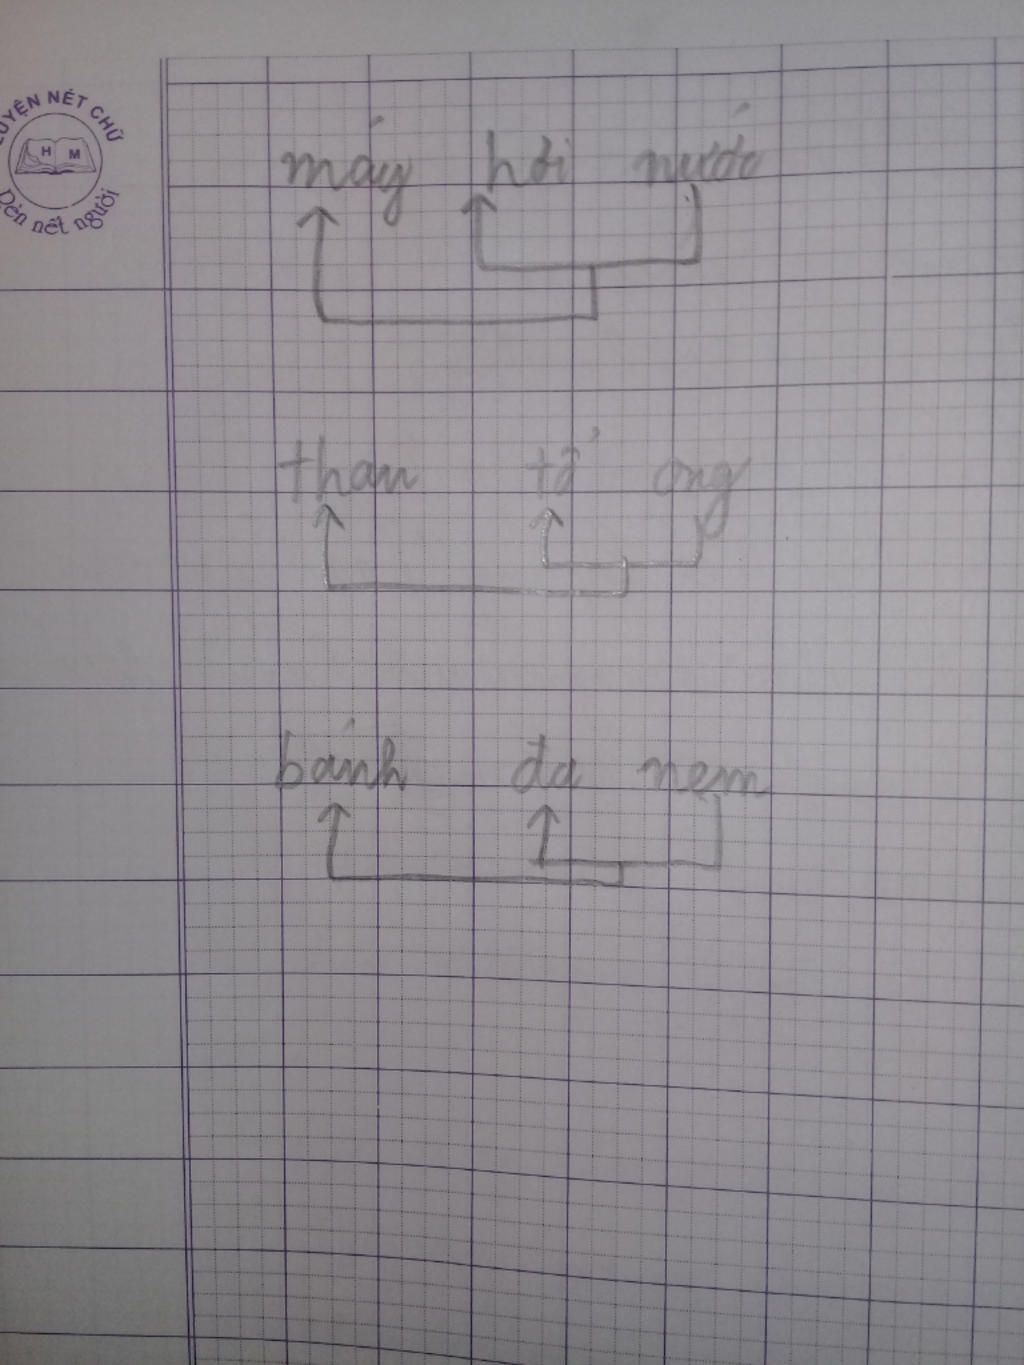 LUYỆN NÉT CHỮ
H M
Rèn nết người
máy hơi nước
than tổ ong
bánh đa nem